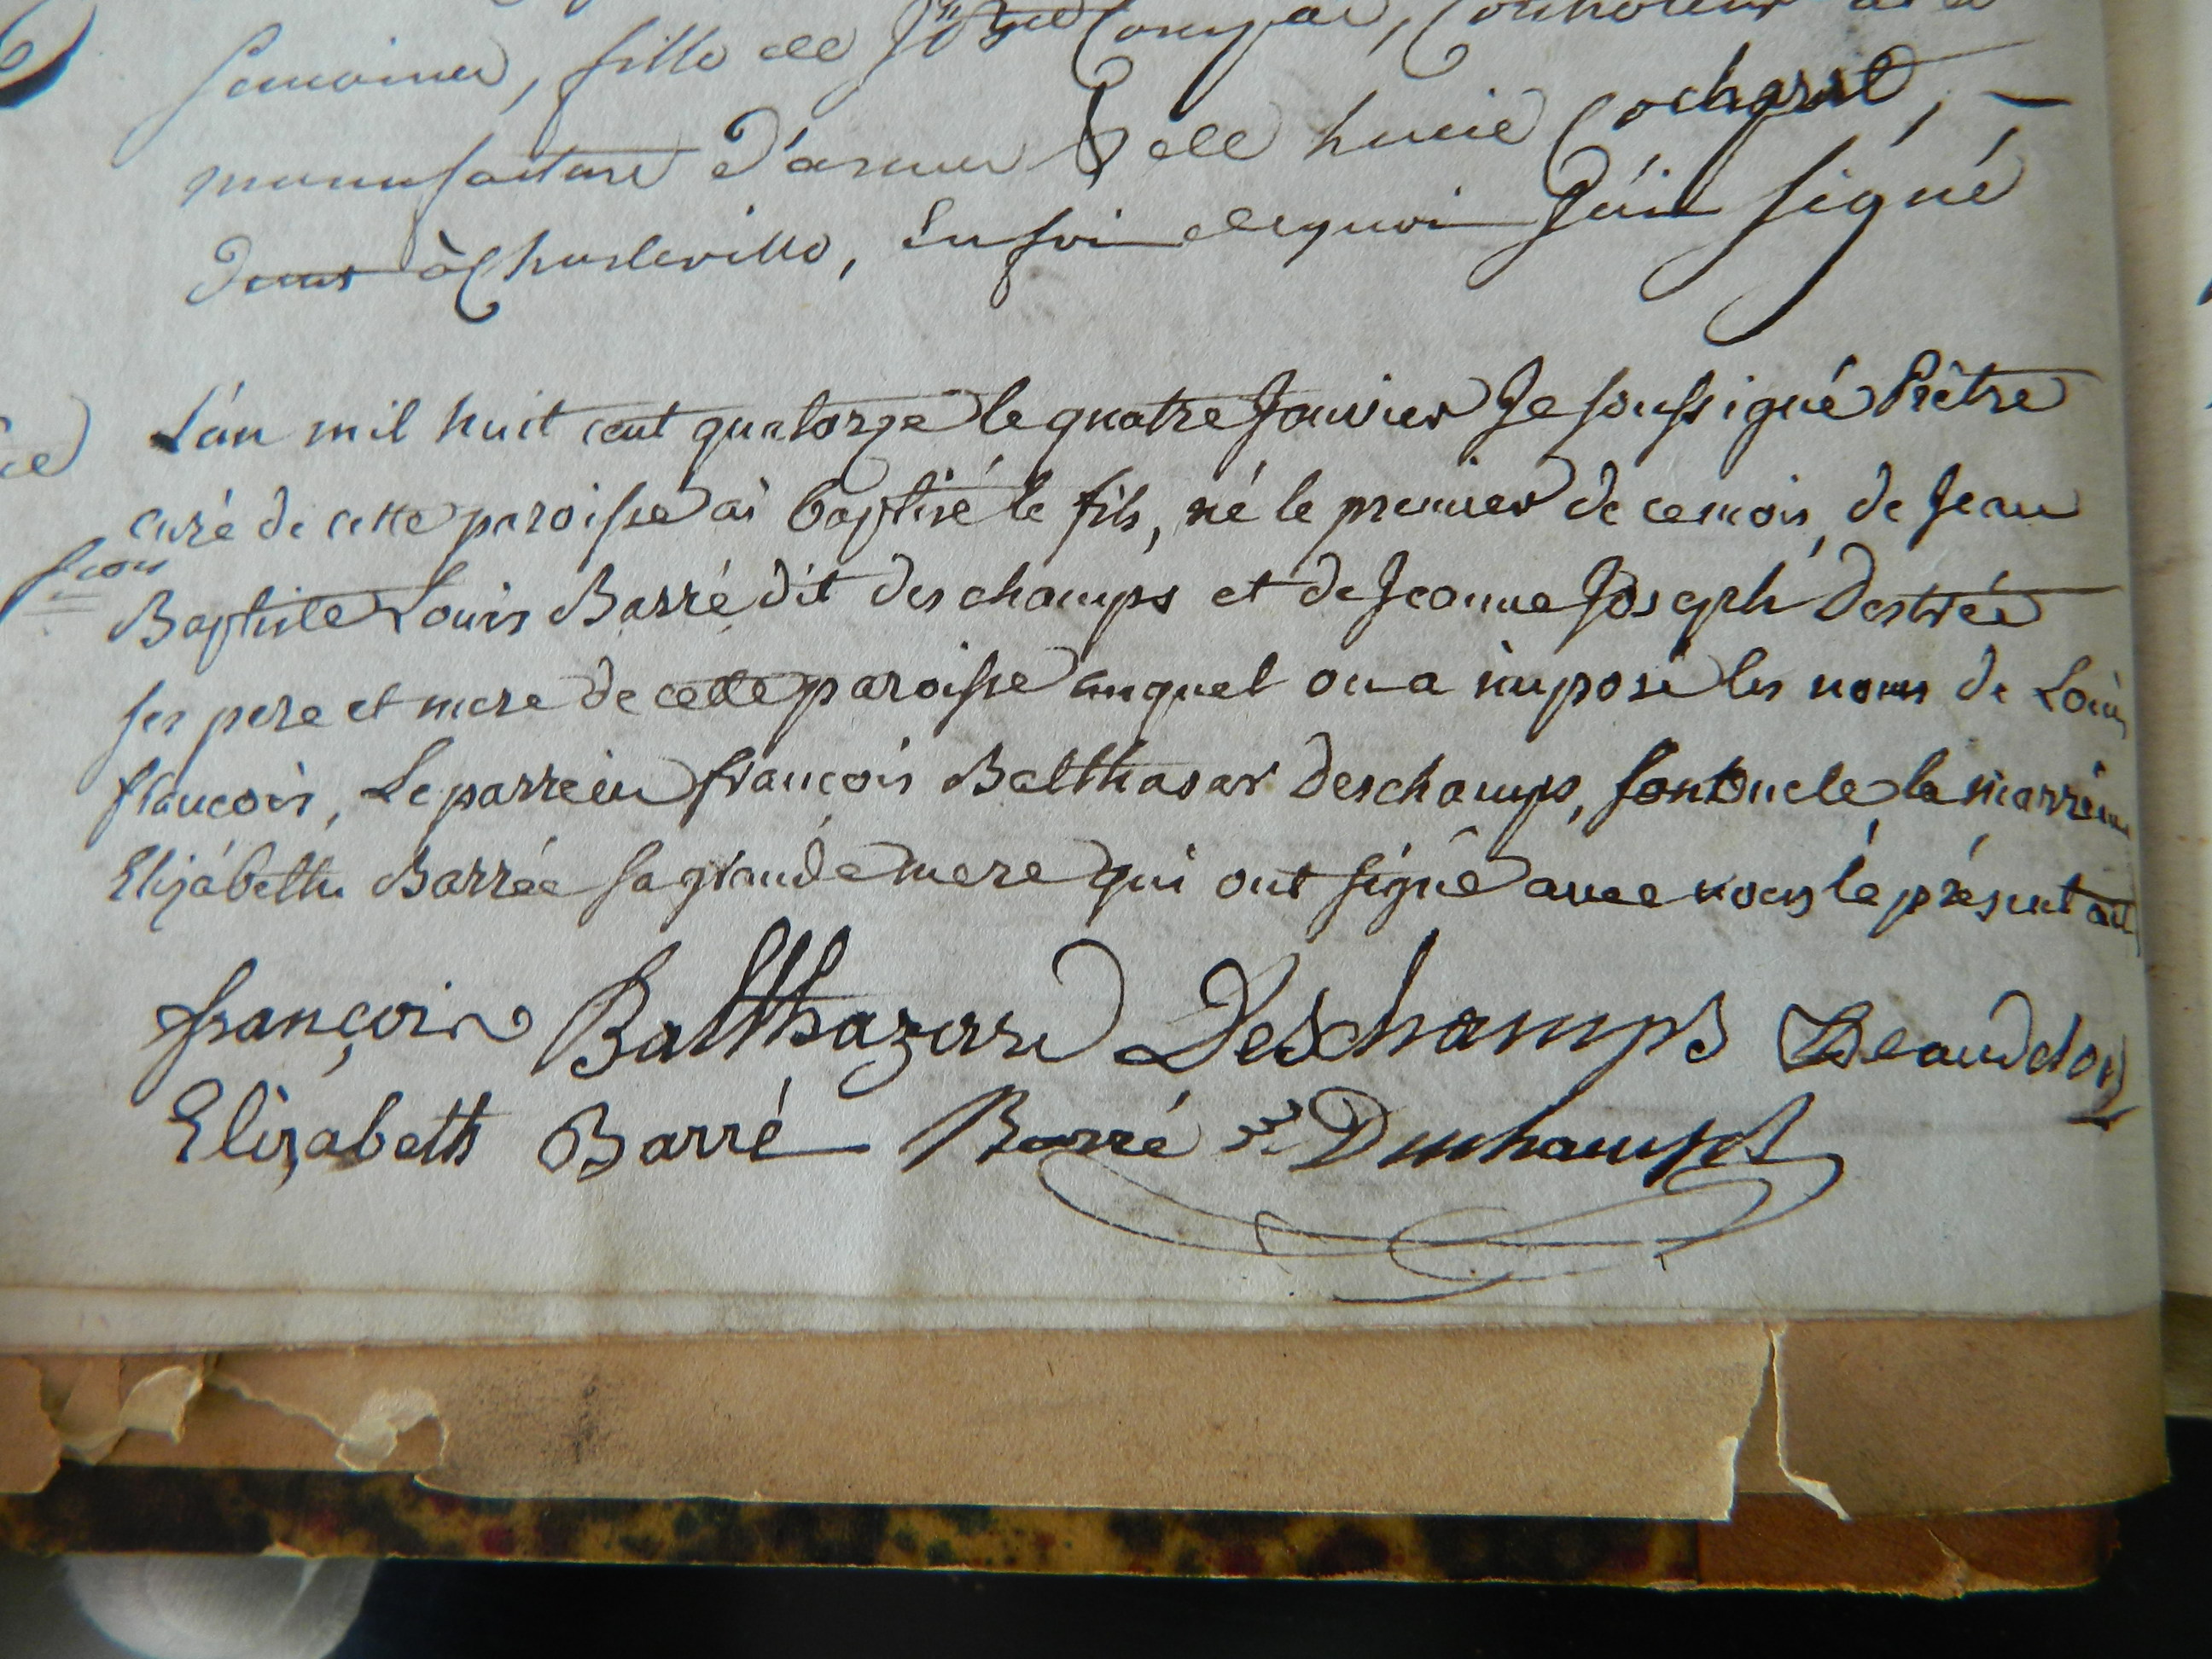 semaines, fille de
manufacture d'armes & de lucie Cocharet, —
deux à Charleville, En foi de quoi J'ai signé
L'an mil huit cent quatorze le quatre Janvier Je soussigné Prêtre
curé de cette paroisse ai baptisé le fils, né le premier de ce mois, de Jean
Baptiste Louis Barré dit deschamps et de Jeanne Joseph Destrée
ses pere et mere de cette paroisse auquel on a imposé les noms de Louis
françois, Le parrein françois Balthasar Deschamps, son Oncle, la marreine
Elizabethe Barrée sa grande mere qui ont signé avec nous le présent act
françois Balthazard Deschamps Beaudelot
Elizabeth Barré Barré dt Deschamps